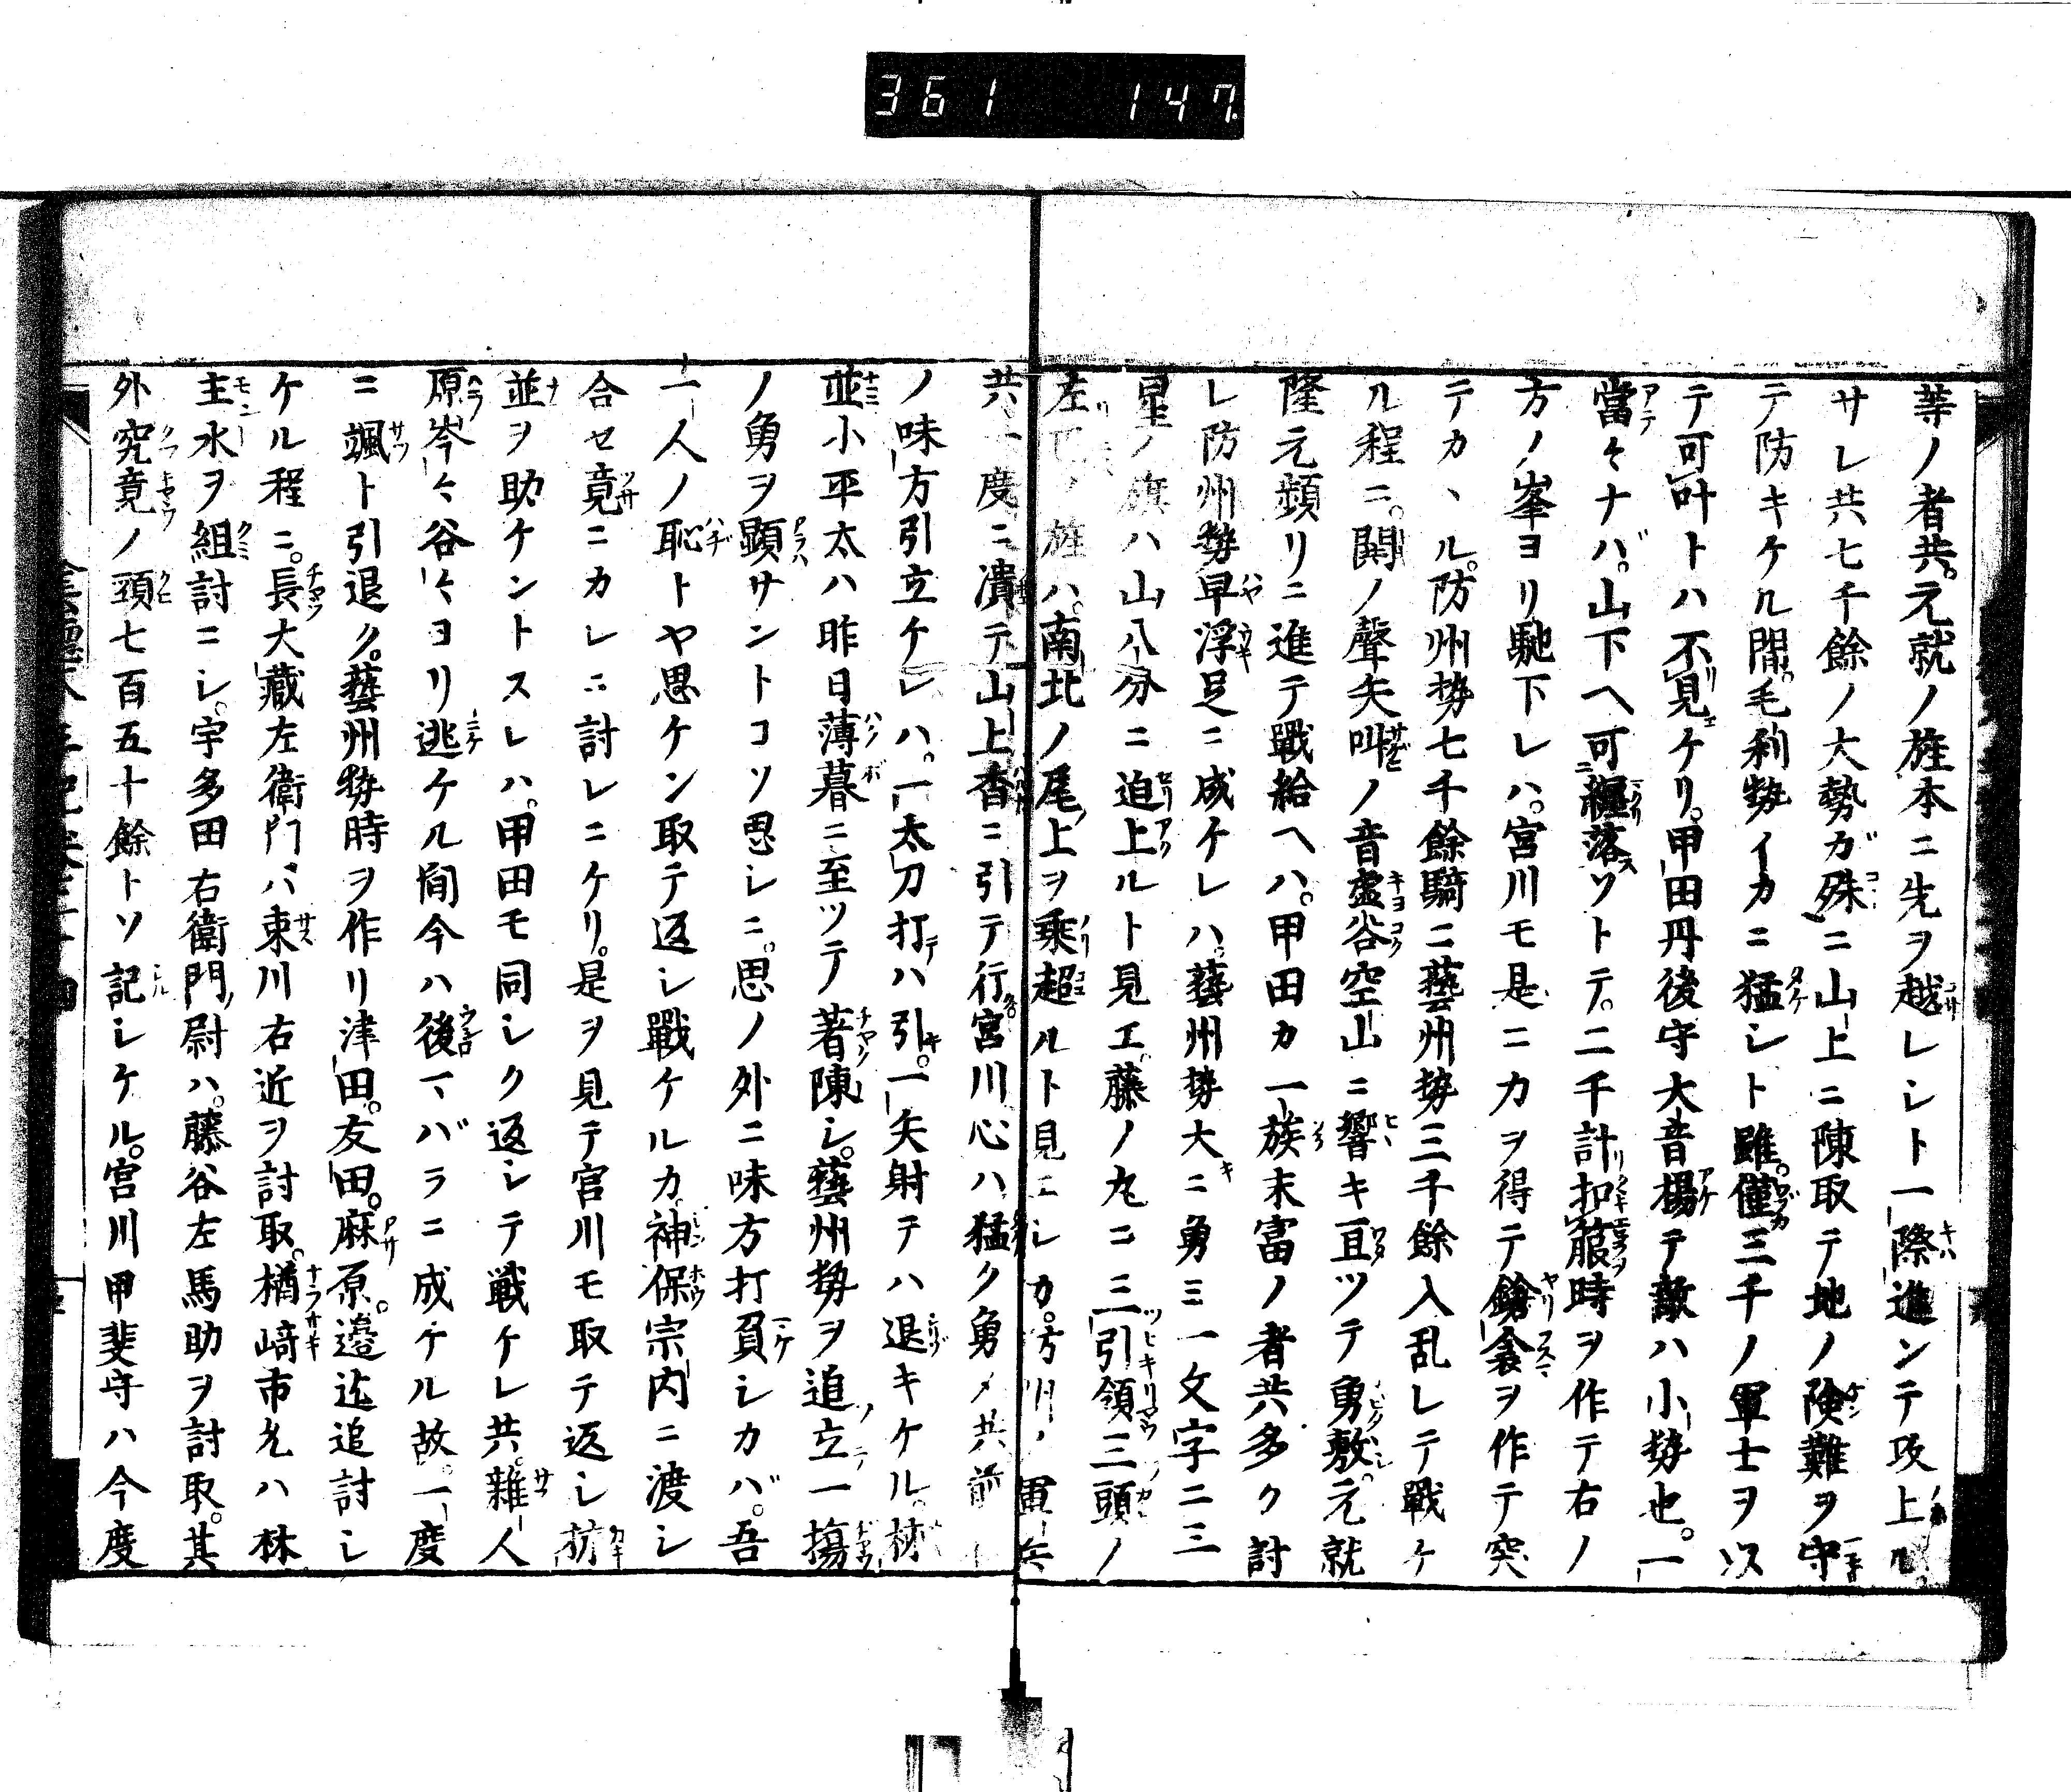 361 147
等ノ者共。元就ノ旌本ニ先ヲ越レシト一際進ンテ攻上ル
サレ共七千餘ノ大勢ガ殊ニ山上ニ陳取テ地ノ険難ヲ守
テ防キケル間。毛利勢イカニ猛シト雖。僅三千ノ軍士ヲ以
テ可叶トハ不見ケリ。甲田丹後守大音揚テ敵ハ小勢也。一
當々ナバ。山下ヘ可縕落ソトテ。二千計扣箙時ヲ作テ右ノ
方ノ峯ヨリ馳下レハ。宮川モ是ニカヲ得テ鎗衾ヲ作テ突
テカヽル。防州勢七千餘騎ニ藝州勢三千餘入乱レテ戰ケ
ル程ニ。鬨ノ聲矢叫ノ音虚谷空山ニ響キ亘ツテ勇敷。元就
隆元頻リニ進テ戰給ヘハ。甲田カ一族末富ノ者共多ク討
レ防州勢早浮足ニ成ケレハ。藝州勢大ニ勇ミ一文字ニ三
星ノ旗ハ山八分ニ迫上ルト見エ。藤ノ丸ニ三引領三頭ノ
左ノ旌ハ。南北ノ尾上ヲ乗超ルト見エシカ。防州ノ軍兵
共一度ニ潰テ山上沓ニ引テ行。宮川心ハ猛ク勇メ共前
ノ味方引立ケレハ。一太刀打テハ引。一矢射テハ退キケル。
並小平太ハ昨日薄暮ニ至ツテ著陳シ。藝州勢ヲ追立一塲
ノ勇ヲ顕サントコソ思シニ。思ノ外ニ味方打負シカバ。吾
一人ノ恥トヤ思ケン取テ返シ戰ケルカ。神保宗内ニ渡シ
合セ竟ニカレニ討レニケリ。是ヲ見テ宮川モ取テ返シ
並ヲ助ケントスレハ。甲田モ同シク返シテ戦ケレ共。雜人
原岑々谷々ヨリ逃ケル間今ハ後マバラニ成ケル故。一度
ニ颯ト引退ク。藝州勢時ヲ作リ津田。友田。麻原。邉迄追討シ
ケル程ニ。長大蔵左衛門ハ東川右近ヲ討取。楢﨑市允ハ林
主水ヲ組討ニシ。宇多田右衛門尉ハ。藤谷左馬助ヲ討取。其
外究竟ノ頸七百五十餘トソ記シケル。宮川甲斐守ハ今度